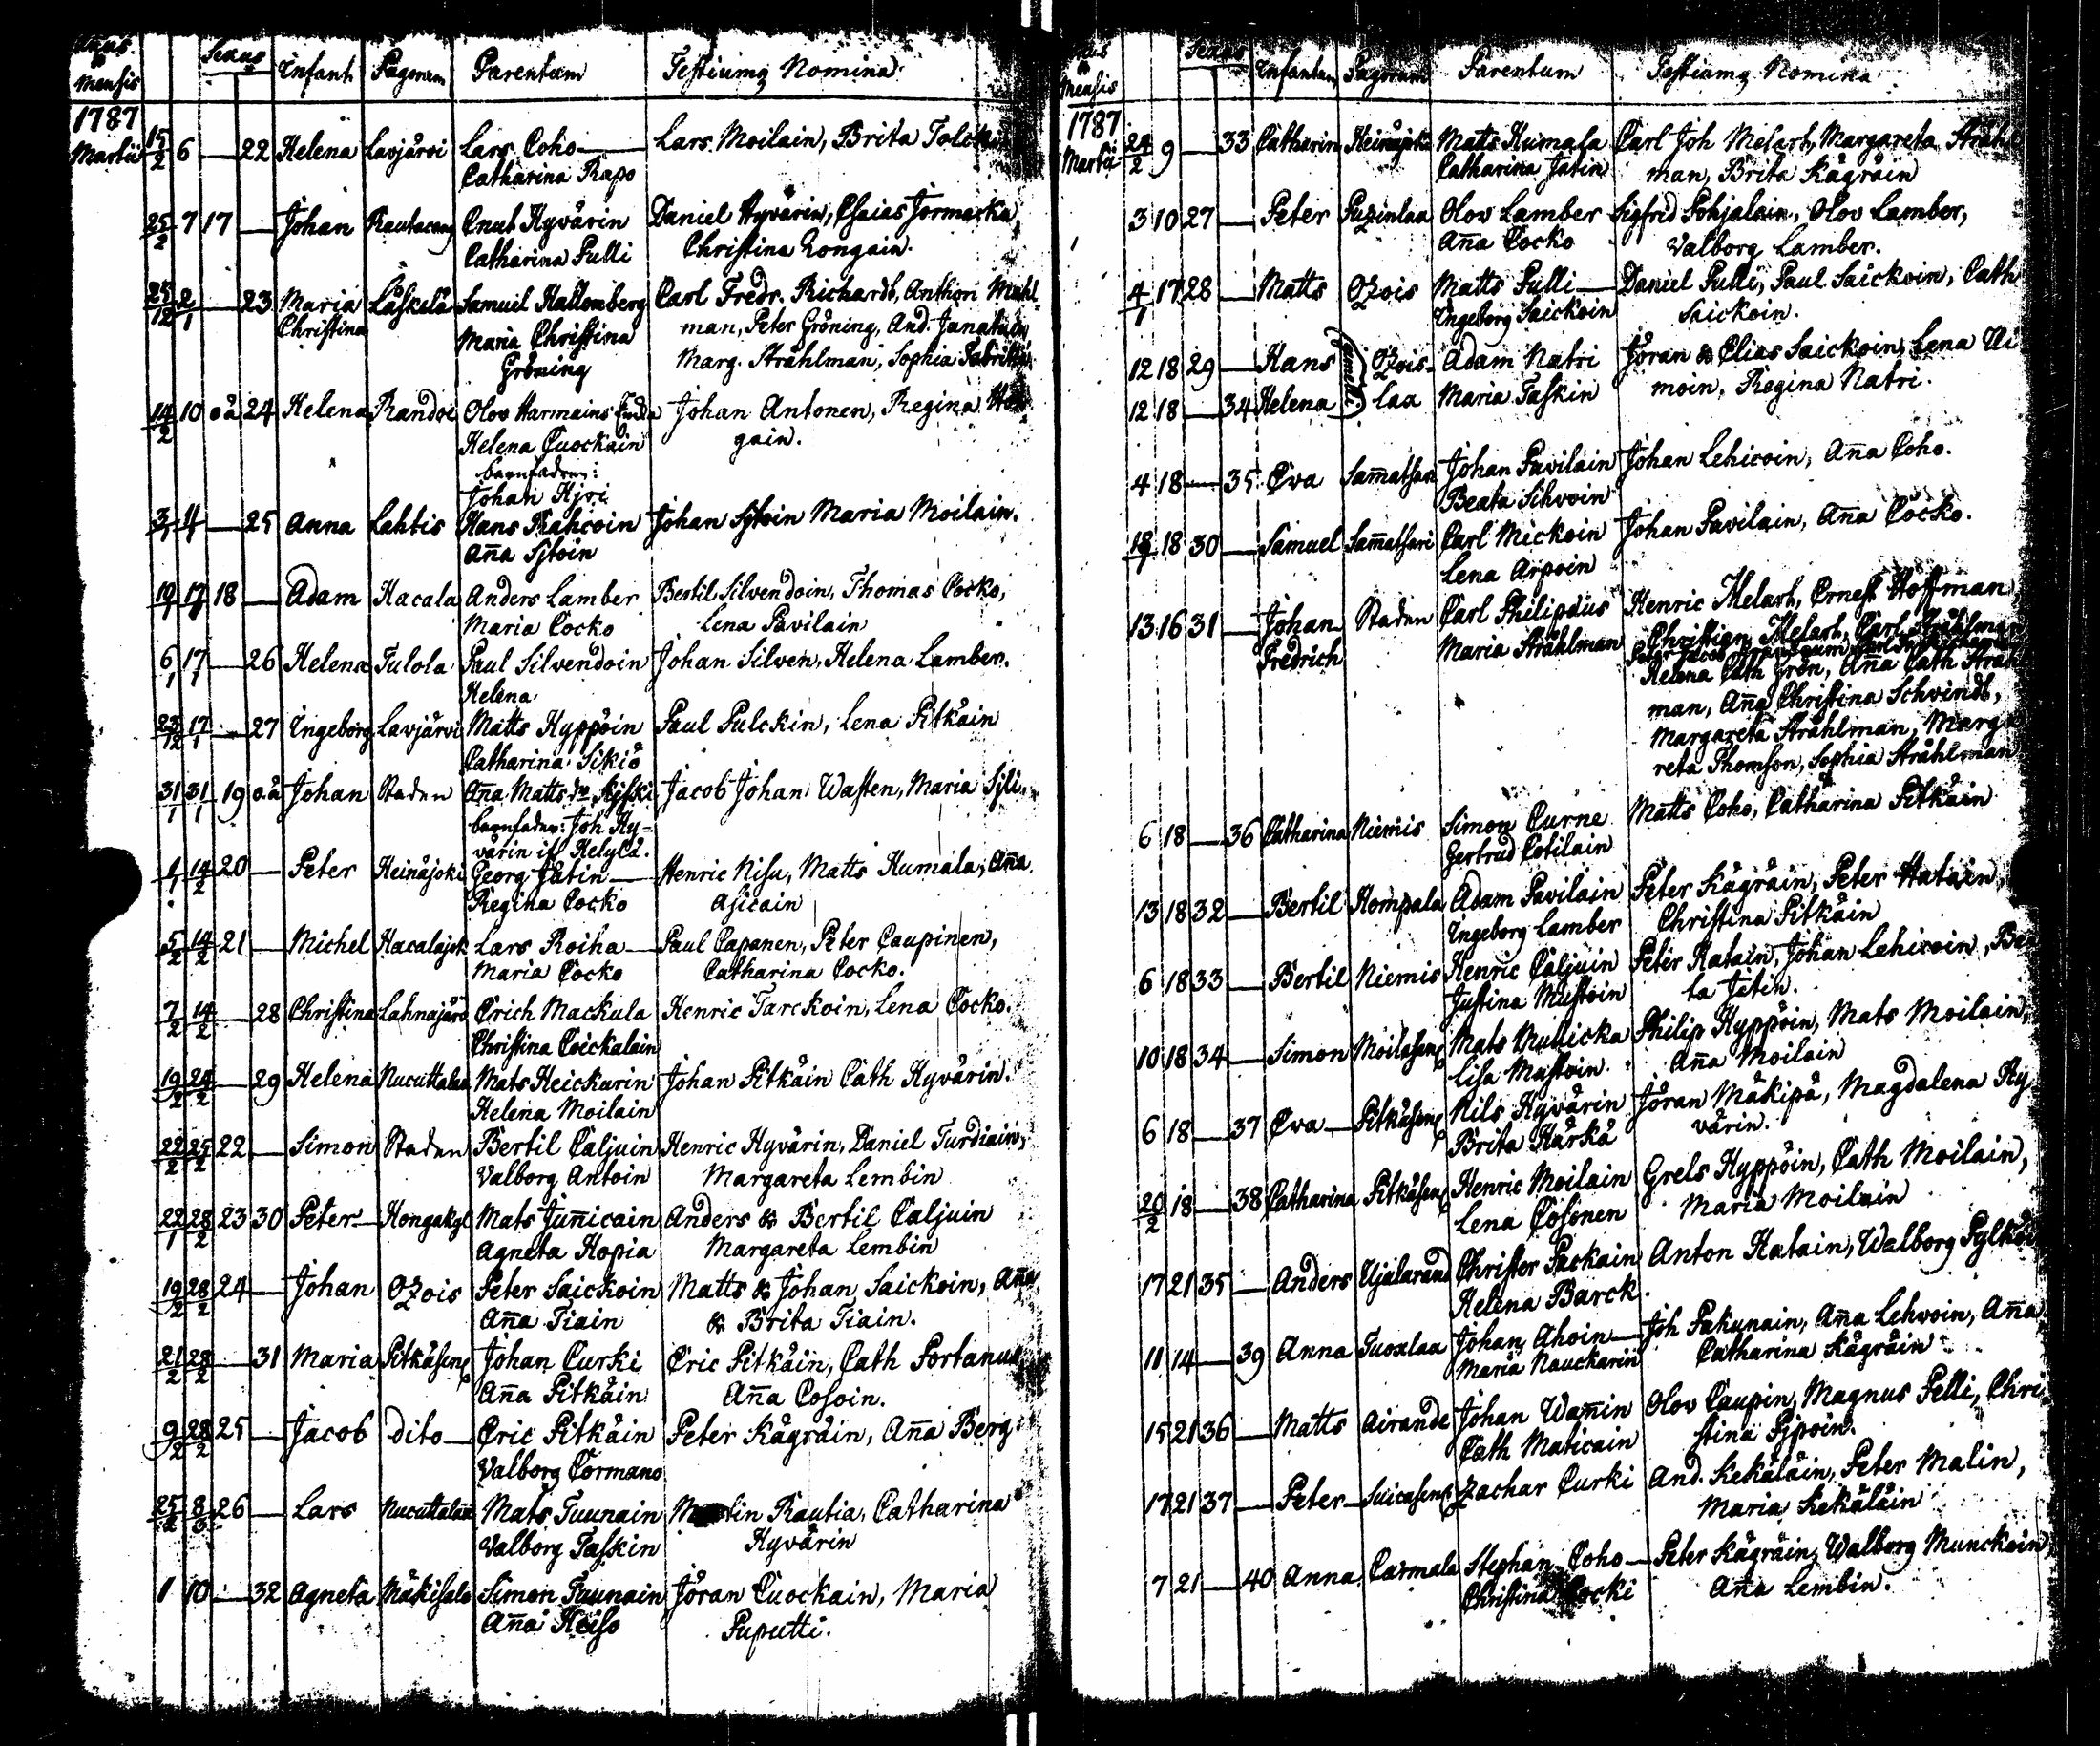 Mensis
Sexus
Infant Pagorum Parentum Testiumq Nomina
1787
Martii 15/2 6 — 22 Helena Lavjärvi Lars Coho — Lars Moilain, Brita
Catharina Rapo
25/2 7 17 — Johan Knut Hyvärin Daniel Hyvärin, Esaias Jormacka
Catharina Pulli Christina Rongain.
25/12 2/1 — 23 Maria Läskelä Samuel Hallonberg Carl Fredr. Richardt, Anthon
Christina Maria Christina man, Peter Gröning, And.
Gröning Marg. Stråhlman, Sophia
14/2 10 o ä 24 Helena Randoi Olov Harmains Johan Antonen, Regina
Helena Cuockain gain.
barnfadren:
Johan
4 — 25 Anna Lahtis Hans Rahcoin Johan Sytoin Maria Moilain.
Aña Sytoin
18 — Adam Hacala Anders Lamber Bertil Silvendoin, Thomas Cocko,
Maria Cocko Lena Pavilain
6/1 17/1 — 26 Helena Tulola Paul Silvendoin Johan Silven, Helena Lamber.
Helena
23/12 17/1 — 27 Ingeborg Lavjärvi Matts Hyppöin Paul Pulckin, Lena Pitkäin
Catharina Sikiö
31/1 31/1 19 o.ä Johan Staden Aña Matts dr Jacob Johan Wasten, Maria
barnfader: Joh. Hy=
värin
1/1 14/2 20 — Peter Heinäjoki Georg Jätin — Henric Nisu, Matts Humala, Aña
Regina Cocko Asicain
5/2 14/2 21 — Michel Hacalajok Lars Roiha — Paul Papanen, Peter Caupinen,
Maria Cocko Catharina Cocko.
7/2 14/2 — 28 Christina Lahnajärv Erich Mackula Henric Tarckoin, Lena Cocko.
Christina Coickalain
19/2 24/2 — 29 Helena Nucuttalax Mats Heickurin Johan Pitkäin Cath Hyvärin.
Helena Moilain
22/2 25/2 22 — Simon Staden Bertil Caljuin Henric Hyvärin, Daniel Turdiain,
Valborg Antoin Margareta Lembin
22/1 28/2 23 30 Peter — Mats Juñicain Anders & Bertil Caljuin
Agneta Hopia Margareta Lembin
19/2 28/2 24 — Johan Ozois Peter Saickoin Matts & Johan Saickoin, Aña
Aña Tiain & Brita Tiain.
21/2 28/2 — 31 Maria Pitkäsens Johan Curki Eric Pitkäin, Cath Portanus
Aña Pitkäin Aña Cosoin.
9/2 28/2 25 — Jacob dito — Eric Pitkäin Peter Kägräin, Aña Berg
Valborg Cormano
25/2 8/3 26 — Lars Nucuttalax Mats Tuunain Martin Rautia, Catharina
Valborg Taskin Hyvärin
1 10 — 32 Agneta Mäkisalo Simon Tuunain Jöran Cuockain, Maria
Aña Heiso Puputti.
Mensis
Sexus
Infantum Pagorum Parentum Testiumq Nomina
1787
Martii 24/2 9 — 33 Catharin Heinäjoki Matts Humala Carl Joh Melart, Margareta Stråhl
Catharina Jätin man, Brita Kägräin
3 10 27 — Peter Puzinlax Olov Lamber Sigfrid Pohjalain, Olov Lamber,
Aña Cocko Valborg Lamber.
4/1 17 28 — Matts Ozois Matts Pulli — Daniel Pulli, Paul Saickoin, Cath
Ingeborg Saickoin Saickoin.
12 18 29 — Hans Ozois Adam Natri Jöran & Elias Saickoin, Lena Ui
12 18 — 34 Helena gemelli lax Maria Taskin moin, Regina Natri.
4 18 — 35 Eva Sam̃atsari Johan Pavilain Johan Lehicoin, Aña Coho.
Beata Sihvoin
18 30 — Samuel Sam̃atsari Carl Mickoin Johan Pavilain, Aña Cocko.
Lena Arpoin
13 16 31 — Johan Staden Carl Philipæus Henric Melart, Ernest Hoffman
Fredrich Maria Stråhlman Christian Melart, Carl Stråhlman
Helena Cath Grön, Aña Cath Stråhl
man, Aña Christina Schvindt,
Margareta Stråhlman, Marga
reta Thomson, Sophia Stråhlman
6 18 — 36 Catharina Niemis Simon Curne Matts Coho, Catharina Pitkäin
Gertrud Cotilain
13 18 32 — Bertil Hompala Adam Pavilain Peter Kägräin, Peter Hatain,
Ingeborg Lamber Christina Pitkäin
6 18 33 — Bertil Niemis Henric Caljuin Peter Hatain, Johan Lehicoin, Bea
Justina Mustoin ta Jätin.
10 18 34 — Simon Moilasens Mats Mullicka Philip Hyppöin, Mats Moilain,
Lisa Mustoin. Aña Moilain
6 18 — 37 Eva — Pitkäsens Nils Hyvärin Jöran Mäkipä, Magdalena Hy
Brita Härkä värin.
20/2 18 — 38 Catharina Pitkäsens Henric Moilain Grels Hyppöin, Cath Moilain,
Lena Cosonen Maria Moilain
17 21 35 — Anders Ujalarand Christer Packain Anton Hatain, Walborg
Helena Barck
11 14 — 39 Anna Tuoxlax Johan Ahoin — Joh Pakunain, Aña Lehvoin, Aña
Maria Nauckarin Catharina Kägräin
15 21 36 — Matts Airande Johan Wam̃in Olov Caupin, Magnus Pelli, Chri
Cath Maticain stina
17 21 37 — Peter — Suicasens Zachar Curki And. Kekäläin, Peter Malin,
Maria Kekäläin
7 21 — 40 Anna Carmala Stephan Coho — Peter Kägräin, Walborg Munckoin,
Christina Cocki Aña Lembin.